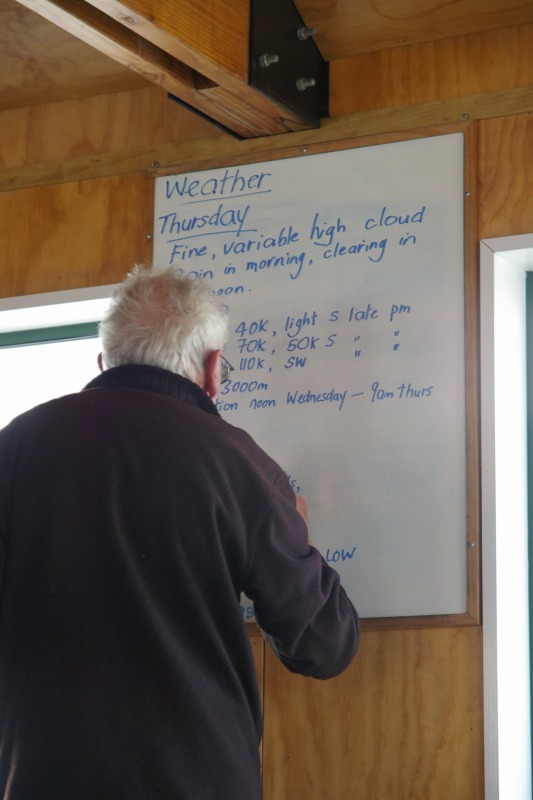 Weather
Thursday
Fine, variable high cloud
in morning, clearing in
40K, light S late pm
70K, 50K S " "
110K, SW " "
3000m
noon Wednesday – 9am Thurs
LOW